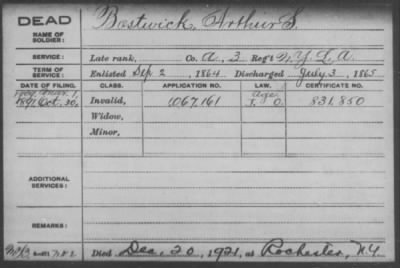 DEAD
NAME OF SOLDIER:
Bostwick, Arthur S.
SERVICE: Late rank, Co. A, 3 Reg't N.Y. L. A.
TERM OF SERVICE: Enlisted Sep 2, 1864 Discharged July 3, 1865
DATE OF FILING. CLASS. APPLICATION NO. LAW. CERTIFICATE NO.
1891 Oct. 30, Invalid, 1067,161 Age 831,850
Widow,
Minor,
ADDITIONAL SERVICES:
REMARKS:
Died Dec. 20, 1921, at Rochester, N.Y.